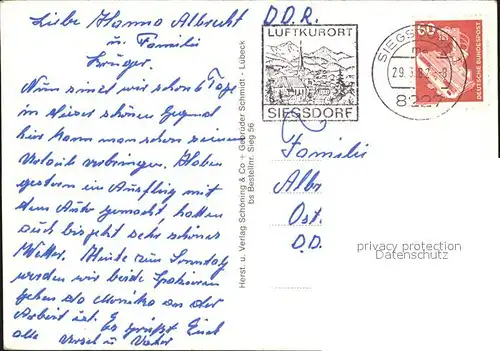 Liebe Hanna Albrecht
u. Familie
Krüger.
Nun sind wir schon 6 Tage
in dieser schönen Gegend
hier kann man schon seinen
Urlaub verbringen. Haben
gestern ein Ausflug mit
dem Auto gemacht, hatten
auch bis jetzt sehr schönes
Wetter. Heute zum Sonntag
werden wir beide Spazieren
gehen da Monika an der
Arbeit ist. Es grüßt Euch
alle Ursel u. Vater
Herst. u. Verlag Schöning & Co + Gebrüder Schmidt - Lübeck
bs Bestellnr. Sieg 56
D.D.R.
LUFTKURORT
SIEGSDORF
SIEGSD
29.3.82-8
8227
60
DEUTSCHE BUNDESPOST
Familie
Albr
Ost.
D.D.
privacy protection
Datenschutz